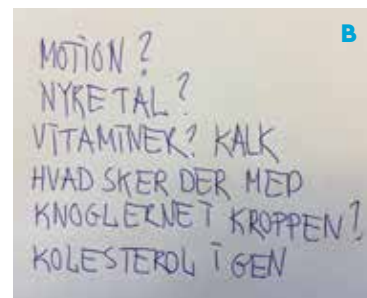 B
MOTION?
NYRETAL?
VITAMINER? KALK
HVAD SKER DER MED
KNOGLERNE I KROPPEN?
KOLESTEROL IGEN